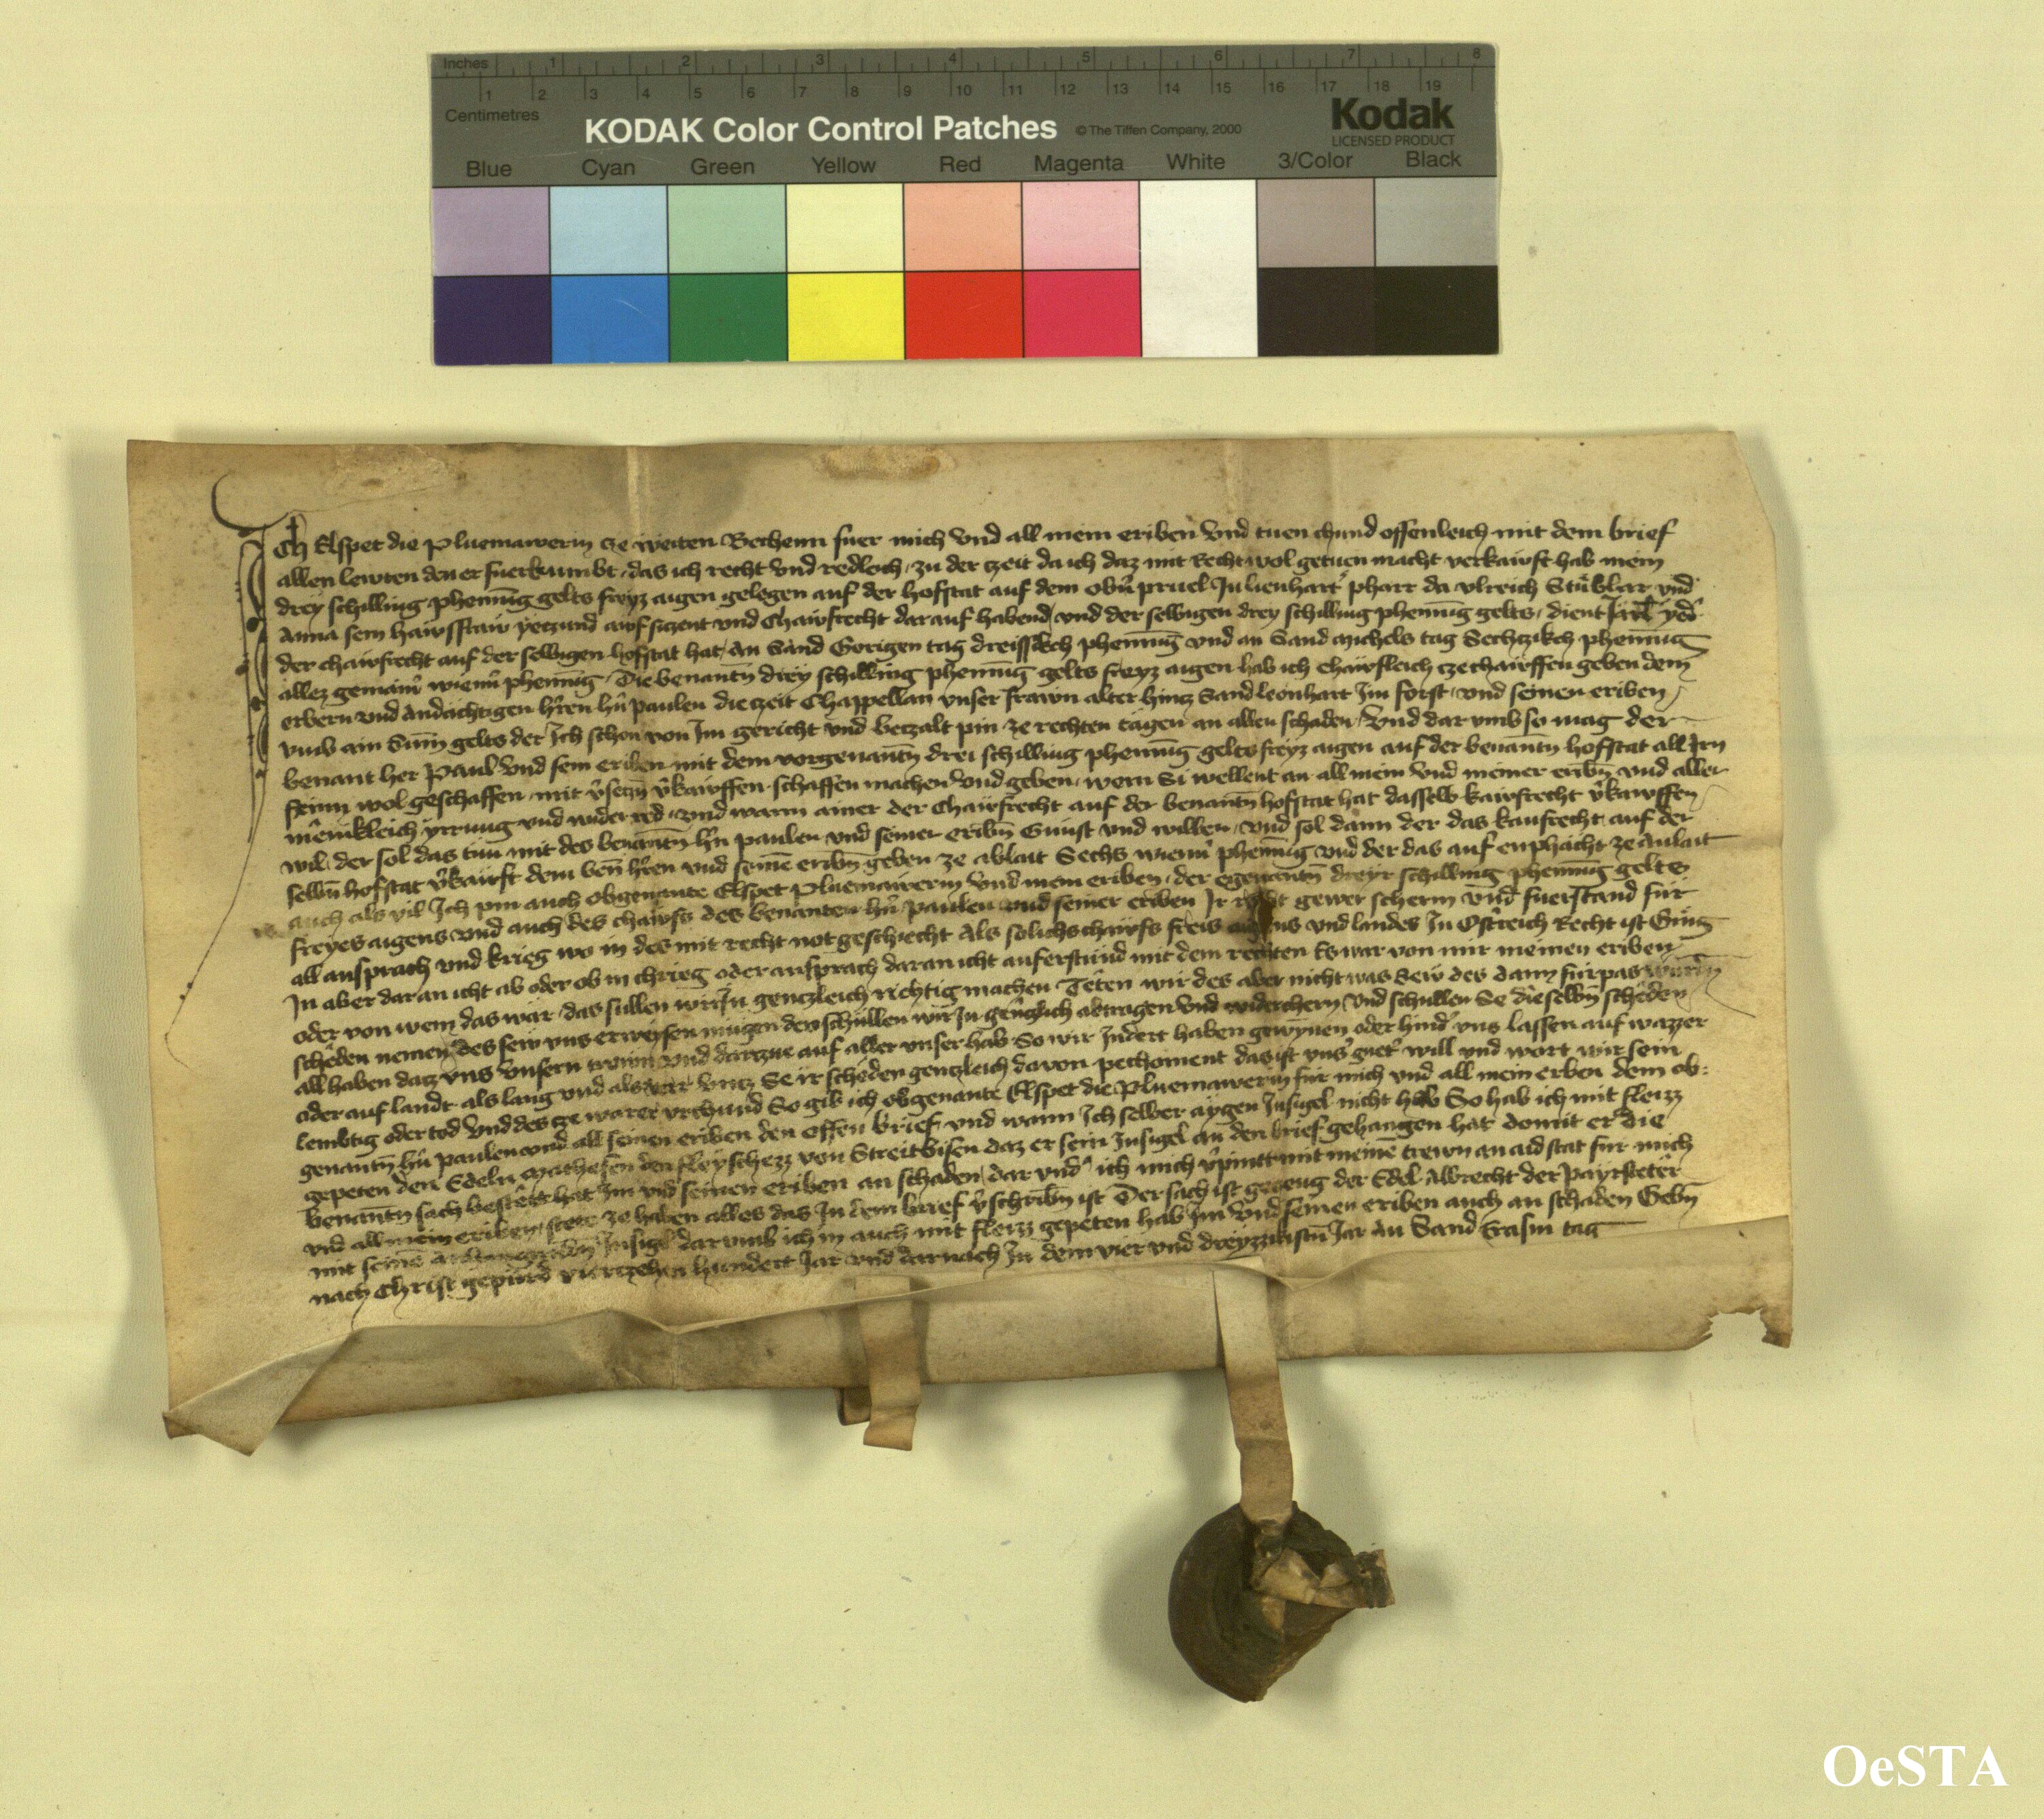 Inches 1 2 3 4 5 6 7 8
1 2 3 4 5 6 7 8 9 10 11 12 13 14 15 16 17 18 19
Centimetres
KODAK Color Control Patches © The Tiffen Company, 2000 Kodak
LICENSED PRODUCT
Blue Cyan Green Yellow Red Magenta White 3/Color Black
Ich Elspet die Pluemawerin cze weiten Bechenn fuer mich vnd all mein eriben vnd tuen chund offenleich mit dem brief
allen lewten den er fuerkumbt das ich recht vnd redleich zu der czeit da ich daz mit Recht wol getuen macht verkawft hab mein
drey schilling phening gelts freyz aigen gelegen auf der hofstat auf dem obn pruel In lienhart phart da vlreich Stüblar vnd
Anna sein hawsfraw yeczund auf siczent vnd Chawfrecht darauf habend vnd der selbigen drey schilling phennig gelts dient
der chawfrecht auf der selbigen hofstat hat An Sand Gorigen tag dreissikch phennig vnd an Sand Michels tag Sechczikch phennig
allez gemainr wienn phennig Die benantn drey schilling phennig gelts freyz aigen hab ich chawfleich cze chawffen geben dem
erbern vnd Andächtigen hren hn paulen die czeit Chappellan vnser frawn alter hincz Sand leonhart Im forst vnd seinen eriben
vmb ain Summ gelts der Ich schon von Im gericht vnd beczalt pin ze rechten tägen an allen schaden Vnd dar vmb so mag der
benant her Paul vnd sein eriben mit dem vorgenantn drei schilling phennig gelts freyz aigen auf der benantn hofstat all Irn
frumn wol geschaffen mit vseczn vkawffen schaffen machen vnd geben wem Si wellent an all mein vnd meiner eribn vnd aller
mënikleich yrrung vnd wider red vnd wann ainer der Chawfrecht auf der benantn hofstat hat dasselb kawfrecht vkawffen
wil der sol das tun mit des benantn hn paulen vnd seiner eribn Gunst vnd willen vnd sol dann der das kaufrecht auf der
selbn hofstat vkawft dem ben hren vnd seine eribn geben ze ablait Sechs wienn phennig vnd der das auf enphächt ze Anlait
auch als vil Ich pin auch obgenante Elspet Pluemawerin vnd mein eriben der egenantn dreyr schilling phennig gelts
freyes aigens vnd auch des chawfs des benanten hn paulen vnd seiner eriben Ir gewer scherm vnd fuerstand fur
all ansprach vnd krieg wo in des mit recht not geschiecht Als solichs chawfs freis vnd landes In Ostreich Recht ist Gieng
In aber dar an icht ab oder ob in chrieg oder ansprach daran icht auferstund mit dem rechten Es war von mir meinen eriben
oder von wem das wär das sullen wir In genczleich richtig machen Tëten wir des aber nicht was Sew des dann fürpas
schëden nemen des sew vns erweysen mügen den schüllen wir In abtragen vnd widerchern Vnd schullen Se dieselbn schëden
all haben daz vns vnsern trewn vnd darczue auf aller vnser hab So wir Indert haben gewynnen oder hind vns lassen auf wazzer
oder auf landt als lang vnd vncz Se ir schëden genczleich davon pechoment das ist vns guet will vnd wort wir sein
lembtig oder tod Vnd des cze warer vrchund So gib ich obgenante Elspet die Pluemawerin für mich vnd all mein erben dem ob-
genantn hn paulen vnd all seinen eriben den offen brief vnd wann Ich selber aygen Insigel nicht hab So hab ich mit fleizz
gepeten den Edeln Mathesen den fleyschezz von Streitbisen daz er sein Insigel an den brief gehangen hat domit er die
benantn sach bestëtt hat Im vnd seinen eriben an schaden dar vnd ich mich vpintt mit meine trewn an aid stat fur mich
vnd all mein eriben stete ze haben alles das In dem brief vschribn ist Der sach ist geczeug der Edel Albrecht der
mit seine Insigl darvmb ich in auch mit fleizz gepeten hab Im vnd seinen eriben auch an schaden Gebn
nach Christ gepurd vierczehen hundert Iar vnd darnach In dem vier vnd dreyzzikistn Iar An Sand Erasm tag
OeSTA